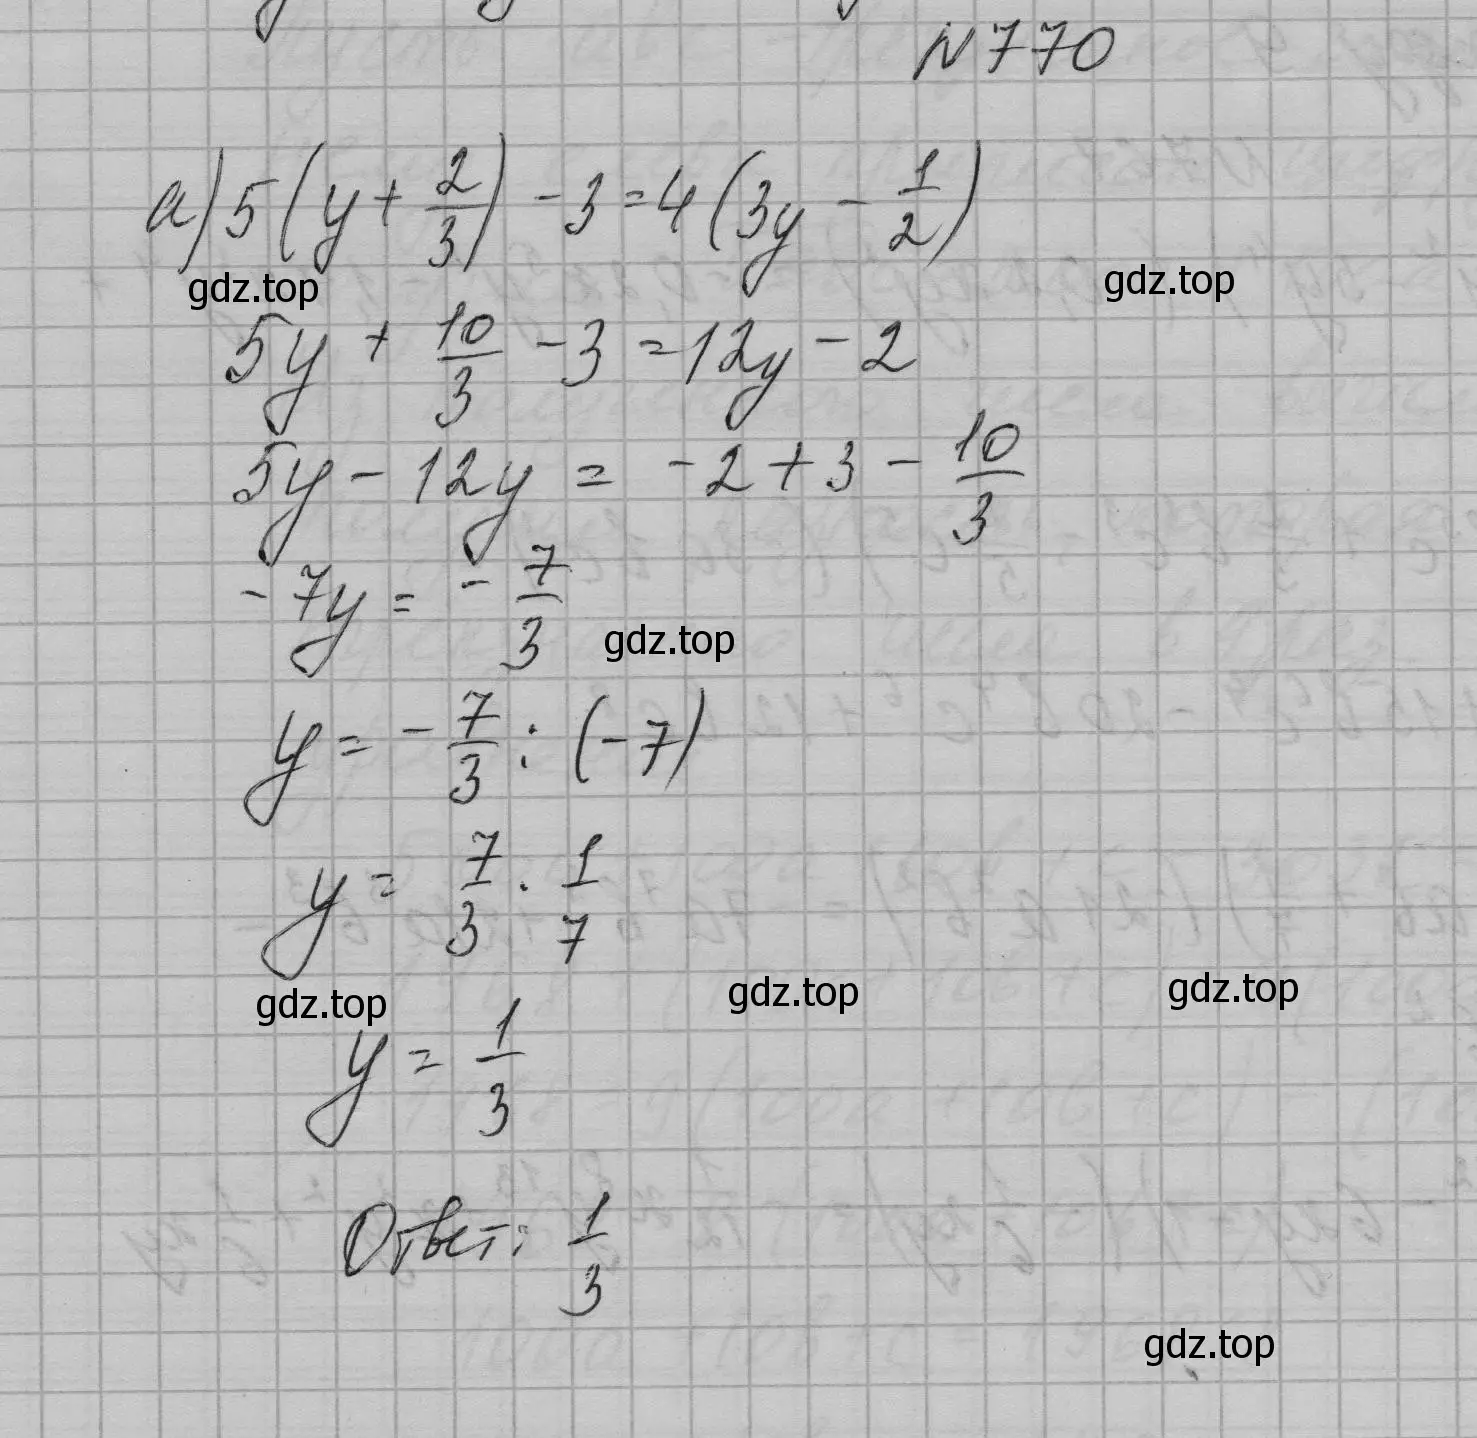 N 770
а) 5(y + 2/3) - 3 = 4(3y - 1/2)
gdz.top gdz.top
5y + 10/3 - 3 = 12y - 2
5y - 12y = -2 + 3 - 10/3
-7y = -7/3
gdz.top
y = -7/3 : (-7)
y = 7/3 · 1/7
gdz.top gdz.top gdz.top
y = 1/3
Ответ: 1/3
gdz.top